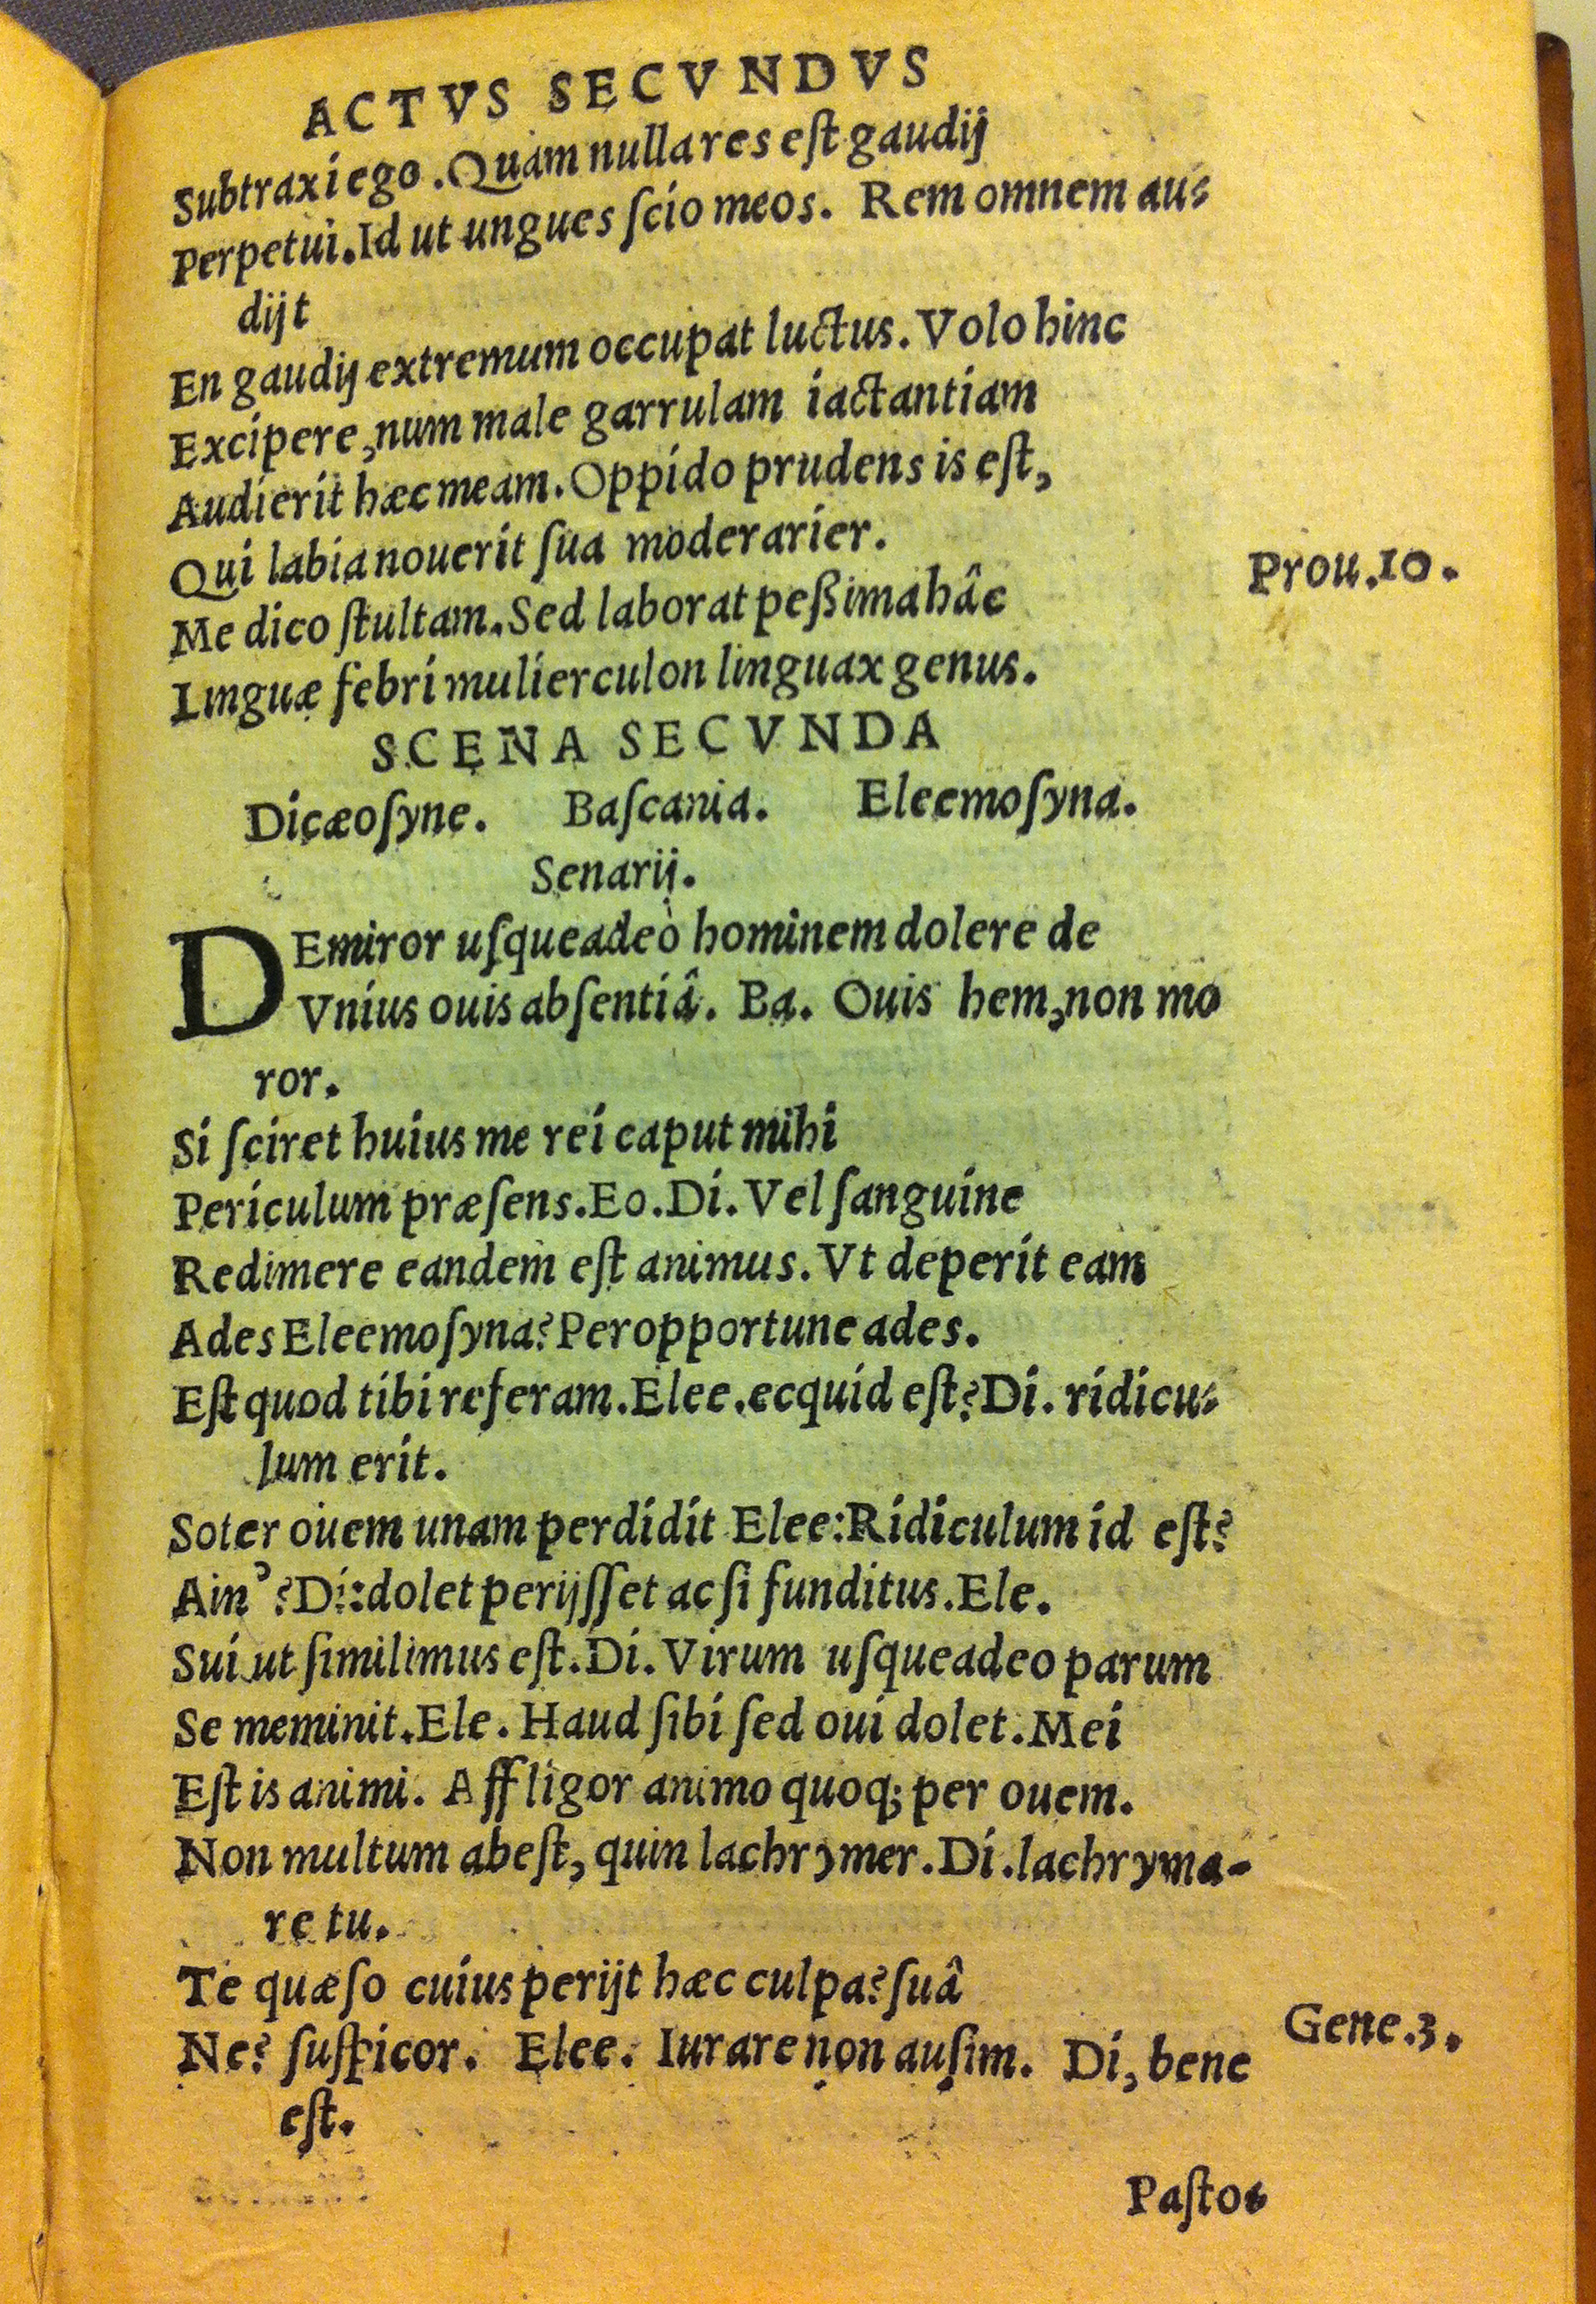 ACTVS SECVNDVS
Subtraxi ego. Quàm nulla res eſt gaudij
Perpetui. Id ut ungues ſcio meos. Rem omnem au-
dijt
En gaudij extremum occupat luctus. Volo hinc
Excipere, num male garrulam iactantiam
Audierit hæc meam. Oppido prudens is eſt,
Qui labia nouerit ſua moderarier.
Prou. 10.
Me dico ſtultam. Sed laborat peßima hâc
Linguæ febri mulierculon linguax genus.
SCENA SECVNDA
Dicæoſyne. Baſcania. Eleemoſyna.
Senarij.
DEmiror uſqueadeò hominem dolere de
Vnius ouis abſentiâ. Ba. Ouis hem, non mo
ror.
Si ſciret huius me rei caput mihi
Periculum præſens. Eo. Di. Vel ſanguine
Redimere eandem eſt animus. Vt deperit eam
Ades Eleemoſyna? Peropportune ades.
Eſt quod tibi referam. Elee. ecquid eſt? Di. ridicu-
lum erit.
Soter ouem unam perdidit Elee: Ridiculum id eſt?
Ain'? Di: dolet perijſſet ac ſi funditus. Ele.
Sui ut ſimilimus eſt. Di. Virum uſqueadeo parum
Se meminit. Ele. Haud ſibi ſed oui dolet. Mei
Eſt is animi. Affligor animo quoq; per ouem.
Non multum abeſt, quin lachrymer. Di. lachryma-
re tu.
Te quæſo cuius perijt hæc culpa? ſuâ
Ne? ſuſpicor. Elee. Iurare non auſim. Di, bene
Gene. 3.
eſt.
Paſto-